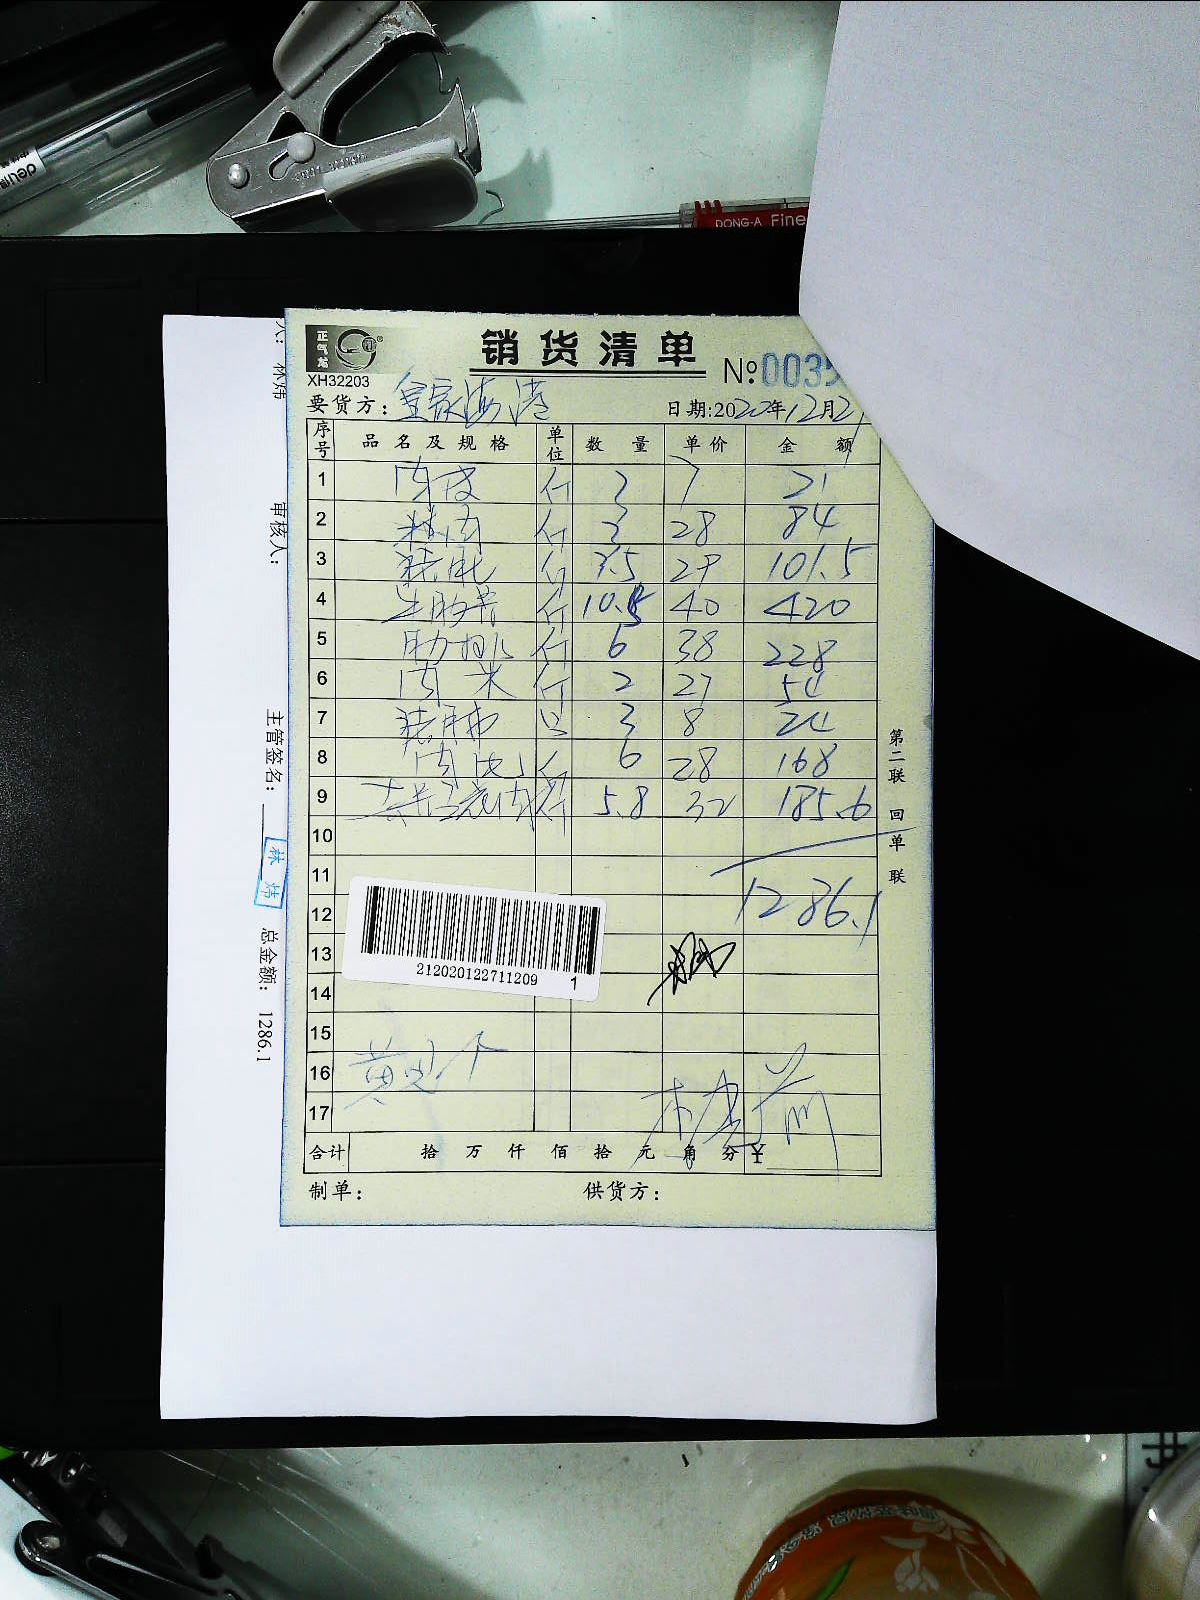 deli
DONG-A Fine
正气龙
销货清单
XH32203
№ 003
要货方：皇家海港
日期:2020年12月2
序号 品名及规格 单位 数量 单价 金额
1 肉皮 斤 3 7 21
2 精肉 斤 3 28 84
3 斤 3.5 29 101.5
4 斤 10.5 40 420
5 肋排 斤 6 38 228
6 肉米 斤 2 27 54
7 只 3 8 24
8 肉 斤 6 28 168
9 斤 5.8 32 185.6
10
11
12 1286.1
13
14
15
16
17
212020122711209 1
合计 拾 万 仟 佰 拾 元 角 分 ¥
制单： 供货方：
第二联 回单联
人： 林炜
审核人：
主管签名： 林炜
总金额： 1286.1